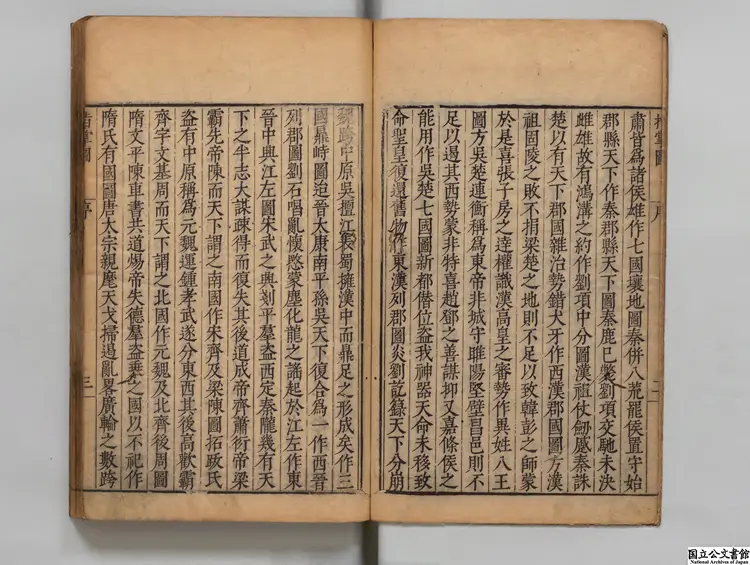 肅皆爲諸侯雄作七國壤地圖秦併八荒罷侯置守始
郡縣天下作秦郡縣天下圖秦鹿已斃劉項交馳未決
雌雄故有鴻溝之約作劉項中分圖漢祖仗劒威秦誅
楚以有天下郡國雜治勢錯犬牙作西漢郡國圖方漢
祖固陵之敗不捐梁楚之地則不足以致韓彭之師蒙
於是喜張子房之達權識漢高皇之審勢作異姓八王
圖方吳楚連衡稱爲東帝非城守睢陽堅壁昌邑則不
足以遏其西勢蒙非特喜趙鄧之善謀抑又嘉條侯之
能用作吳楚七國圖新都僣位盗我神器天命未移致
命聖皇復還舊物作東漢列郡圖炎劉訖錄天下分崩
魏跨中原吳擅江東蜀擁漢中而鼎足之形成矣作三
國鼎峙圖迨晉太康南平孫吳天下復合爲一作西晉
列郡圖劉石唱亂懷愍蒙塵化龍之謠起於江左作東
晉中興江左圖宋武之興刬平羣盗西定秦隴幾有天
下之半志大謀疎得而復失其後道成帝齊蕭衍帝梁
霸先帝陳而天下謂之南國作宋齊及梁陳圖拓跋氏
盗有中原稱爲元魏運鍾孝武遂分東西其後高歡霸
齊宇文基周而天下謂之北國作元魏及北齊後周圖
隋文平陳車書共道煬帝失德羣盗垂之國以不祀作
隋氏有國圖唐太宗親麾天戈掃遏亂畧廣輪之數跨
指掌圖
序
二
指掌圖
序
三
国立公文書館
National Archives of Japan